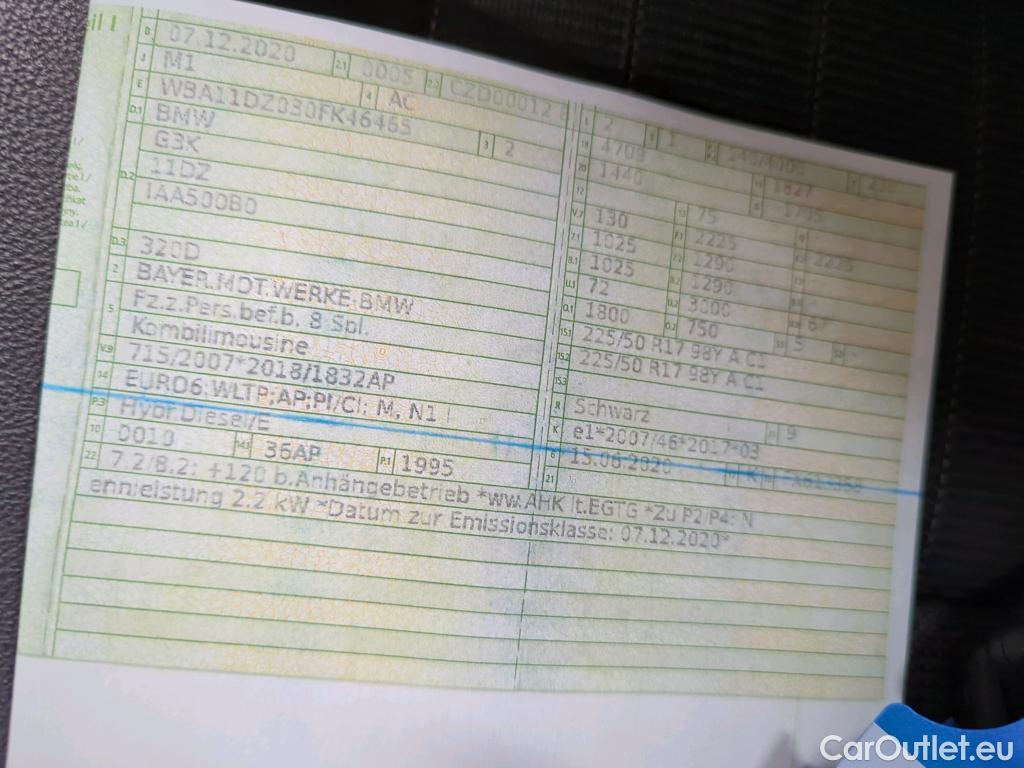 eil I
B 07.12.2020 2.1 0005 2.2 CZD00012 8
J M1 4 AC
E WBA11DZ030FK46465 3 2
D.1 BMW
D.2 G3K
11DZ
IAA500B0
D.3 320D
2 BAYER.MOT.WERKE-BMW
5 Fz.z.Pers.bef.b. 8 Spl.
Kombilimousine
V.9 715/2007*2018/1832AP
14 EURO6;WLTP;AP;PI/CI; M, N1 I
P.3 Hybr.Diesel/E
10 0010 14.1 36AP P.1 1995
22 7.2/8.2: +120 b.Anhängebetrieb *ww.AHK lt.EGTG *Zu P2/P4: N
ennleistung 2.2 kW *Datum zur Emissionsklasse: 07.12.2020*
L 2 9 1 140/4000 T 230
18 4709 19 1827
20 1440 G 1795
12 13 75
V.7 130 F.1 2225 2225
7.1 1025 7.2 1290
8.1 1025 8.2 1290
U.1 72 U.2 3000 67
O.1 1800 O.2 750 S.1 5 S.2
15.1 225/50 R17 98Y A C1
15.2 225/50 R17 98Y A C1
15.3
R Schwarz 11 9
K e1*2007/46*2017*03
6 15.06.2020 17 K 16
21
CarOutlet.eu